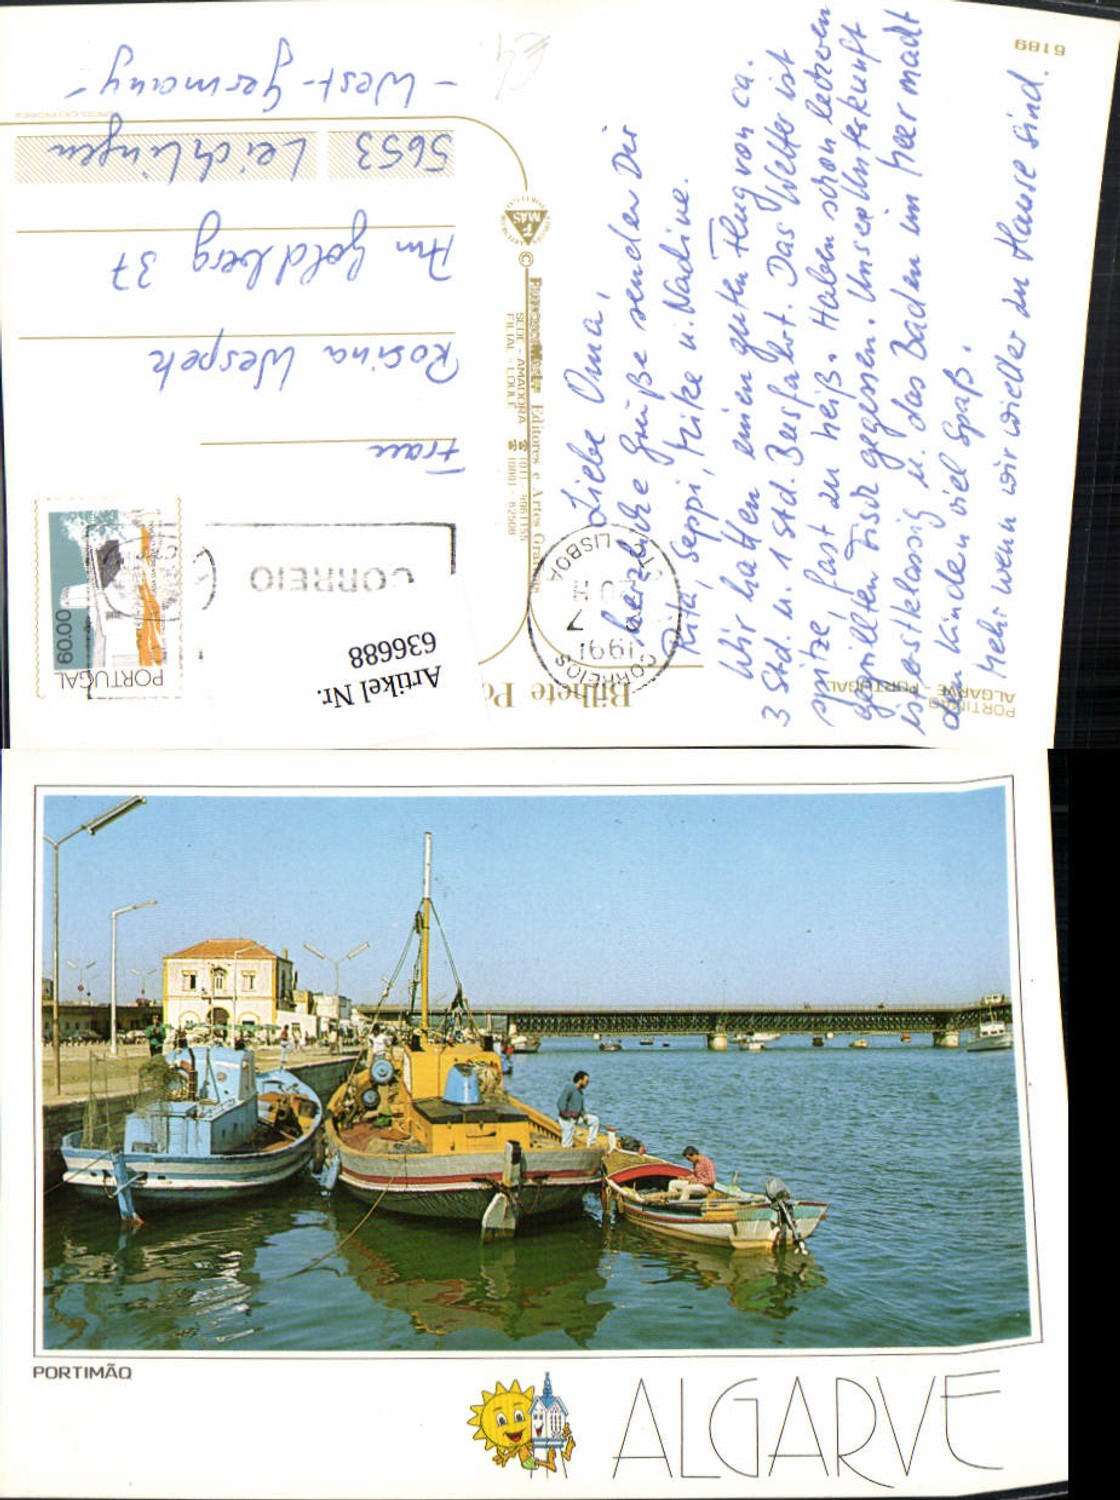 6189
PORTIMÃO
ALGARVE - PORTUGAL
Liebe Oma,
herzliche Grüße senden Dir
Rita, Seppi, Mike u. Nadine.
Wir hatten einen guten Flug von ca.
3 Std. u. 1 Std. Busfahrt. Das Wetter ist
spitze, fast zu heiß. Haben schon leckeren
gegrillten Fisch gegessen. Unsere Unterkunft
ist erstklassig u. das Baden im Meer macht
den Kindern viel Spaß.
Mehr wenn wir wieder zu Hause sind.
Bilhete Po
CORREIOS
1991
LISBOA
© Editores e Artes Gráficas
SEDE - AMADORA
FILIAL - LOULÉ
MAS
PORTUGAL
60.00
CORREIO
Artikel Nr.
636688
Frau
Rosina Wespek
Am Goldberg 37
5653 Leichlingen
- West-Germany -
PORTIMÃO
ALGARVE